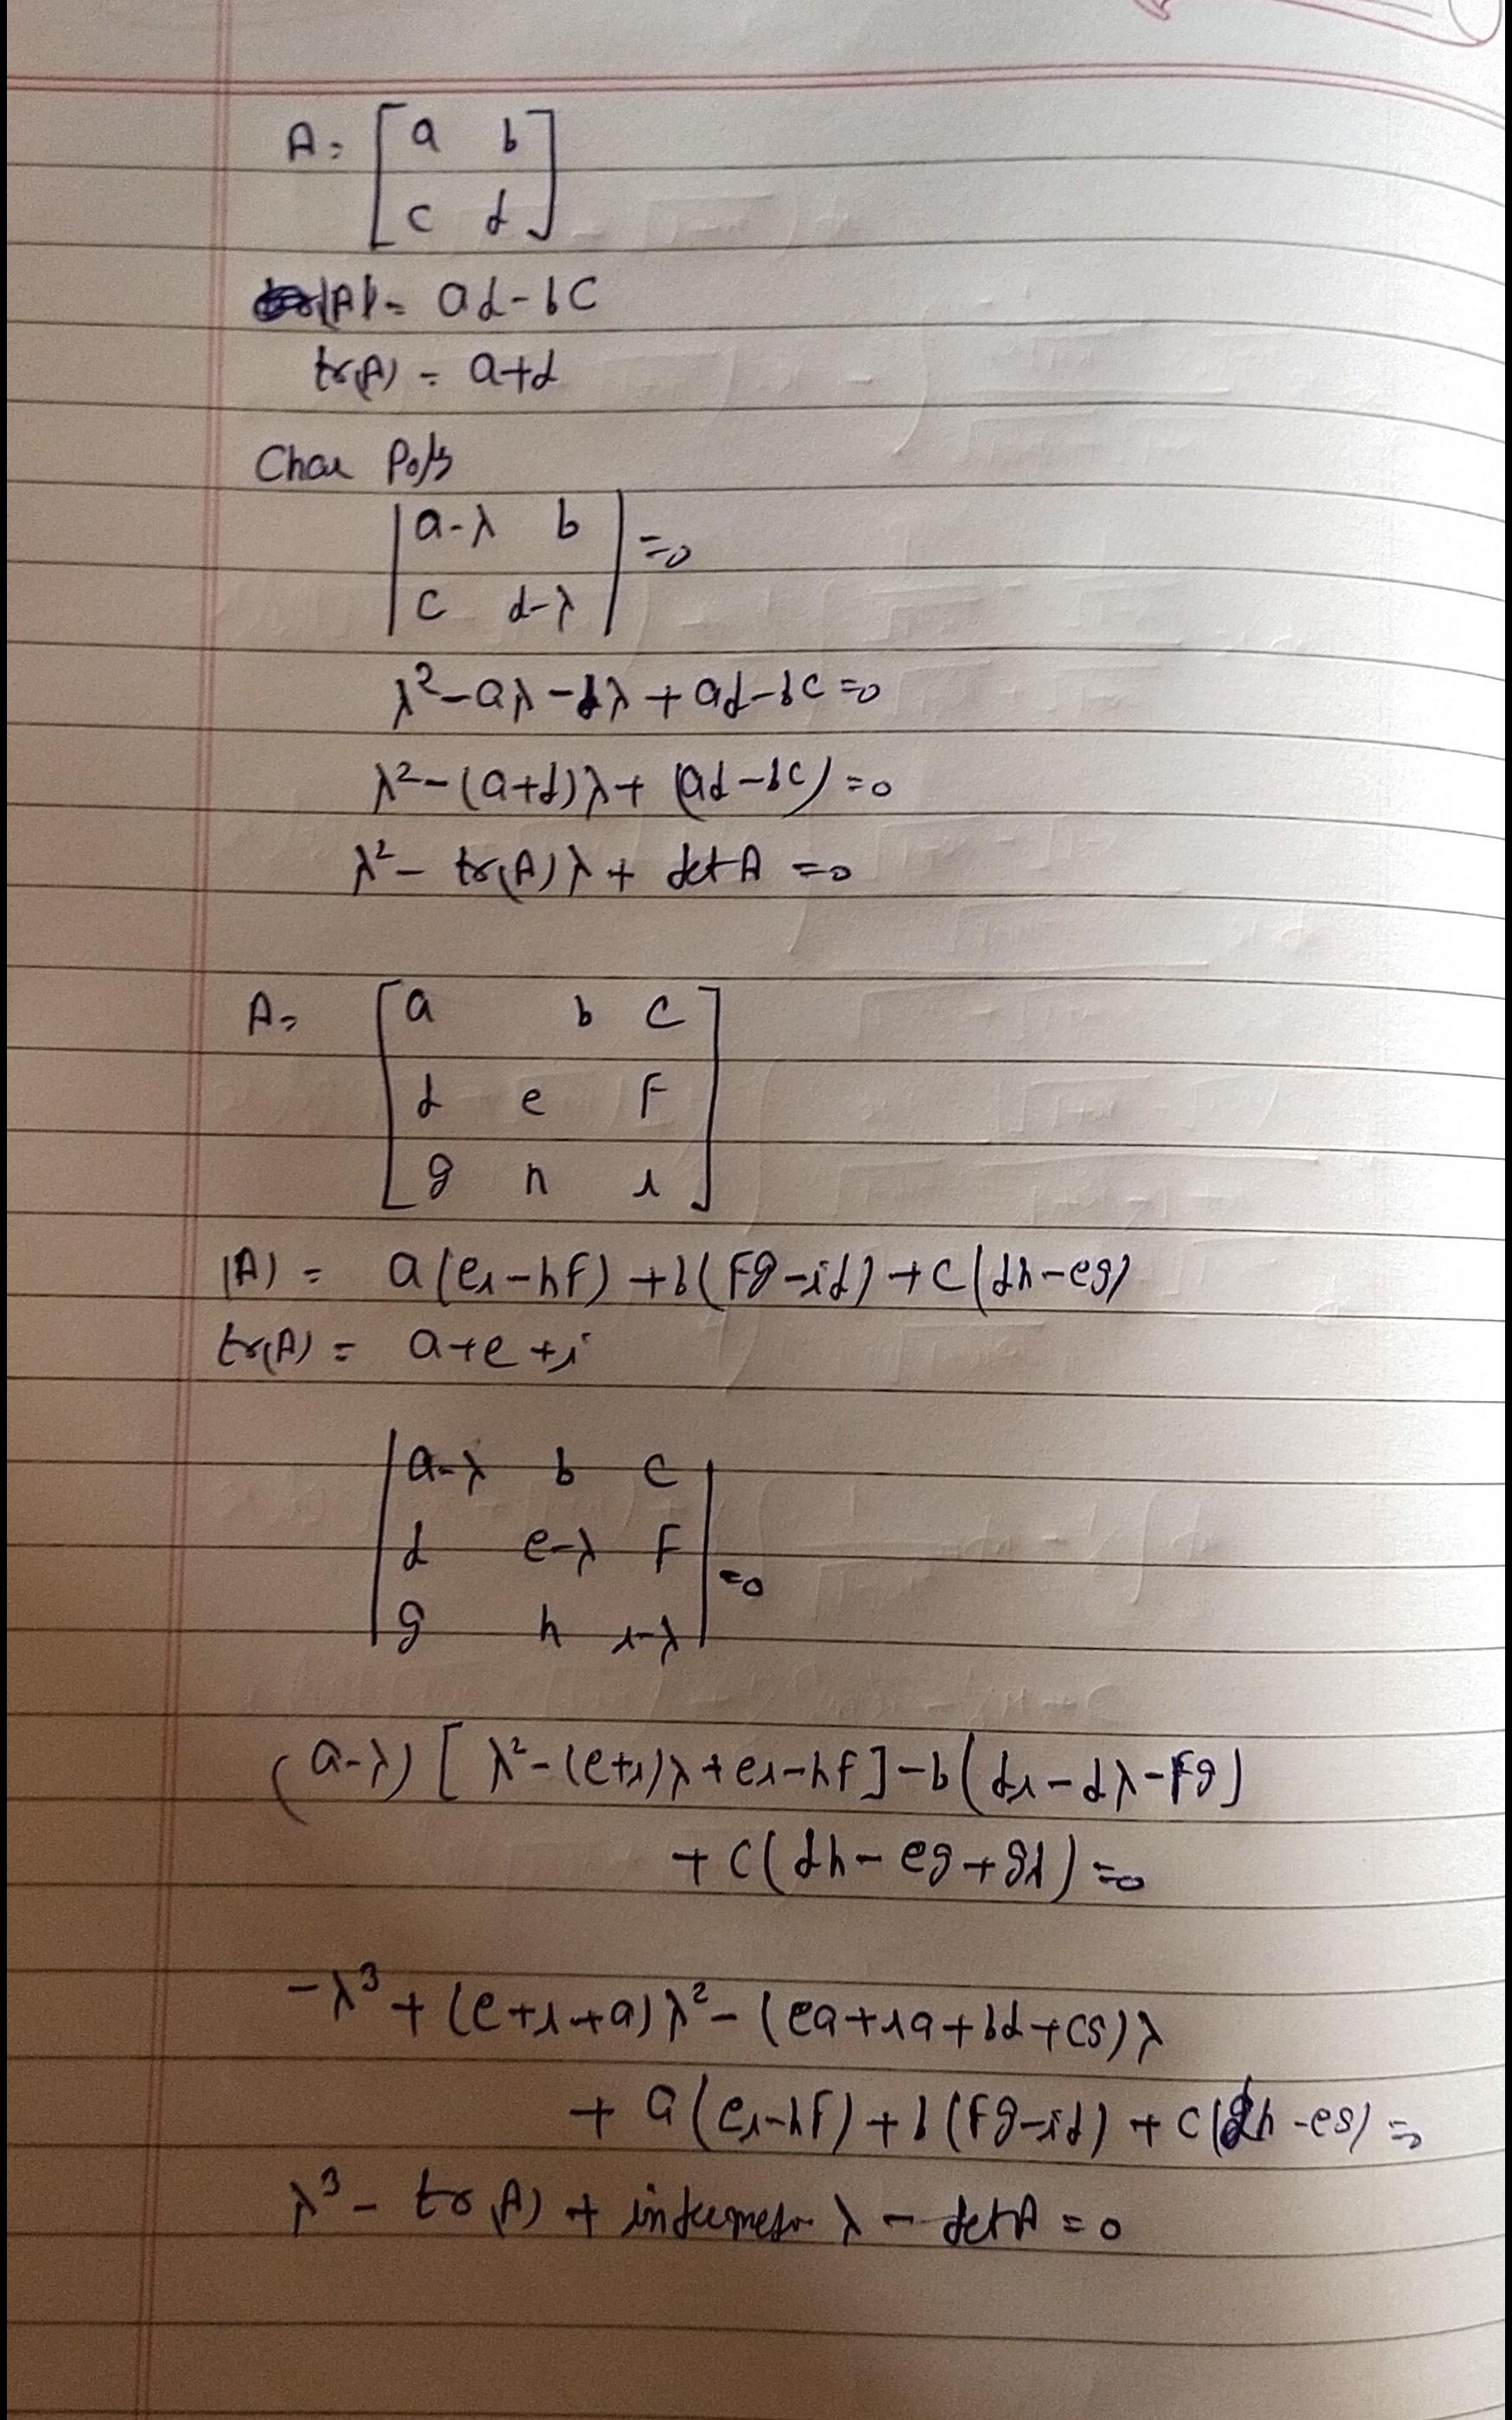 A = [a b
c d]
|A| = ad-bc
tr(A) = a+d
Char Poly
|a-λ b
c d-λ| =0
λ²-aλ-dλ+ad-bc=0
λ²-(a+d)λ+(ad-bc)=0
λ²- tr(A)λ+ det A =0
A= [a b c
d e F
g h i]
|A| = a(ei-hf)+b(Fg-id)+c(dh-eg)
tr(A) = a+e+i
|a-λ b c
d e-λ F
g h i-λ| =0
(a-λ)[λ²-(e+i)λ+ei-hf]-b(di-dλ-Fg)
+c(dh-eg+gλ)=0
-λ³+(e+i+a)λ²-(ea+ia+bd+cg)λ
+ a(ei-hf)+b(Fg-id)+c(dh-eg)=0
λ³- tr(A) + λ - det A = 0